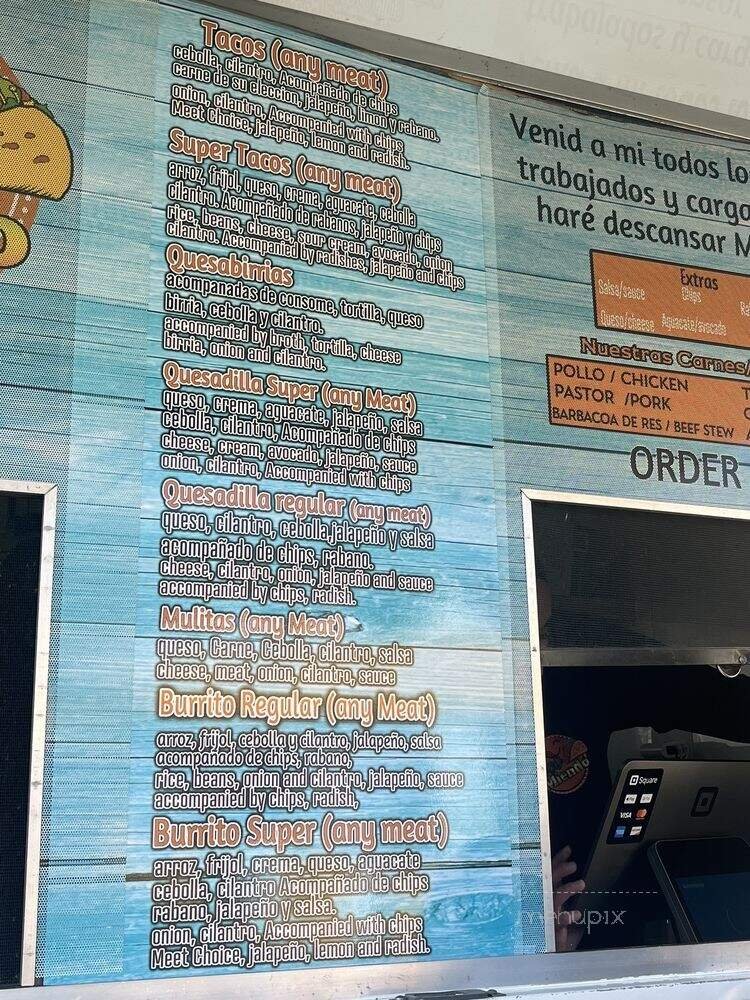 Tacos (any meat)
cebolla, cilantro, Acompañado de chips
carne de su eleccion, jalapeño, limon y rabano.
onion, cilantro, Accompanied with chips
Meet Choice, jalapeño, lemon and radish.
Super Tacos (any meat)
arroz, frijol, queso, crema, aguacate, cebolla
cilantro, Acompañado de rabanos, jalapeño y chips
rice, beans, cheese, sour cream, avocado, onion
cilantro. Accompanied by radishes, jalapeño and chips
Quesabirrias
acompanadas de consome, tortilla, queso
birria, cebolla y cilantro.
accompanied by broth, tortilla, cheese
birria, onion and cilantro.
Quesadilla Super (any Meat)
queso, crema, aguacate, jalapeño, salsa
cebolla, cilantro, Acompañado de chips
cheese, cream, avocado, jalapeño, sauce
onion, cilantro, Accompanied with chips
Quesadilla regular (any meat)
queso, cilantro, cebolla,jalapeño y salsa
acompañado de chips, rabano.
cheese, cilantro, onion, jalapeño and sauce
accompanied by chips, radish.
Mulitas (any Meat)
queso, Carne, Cebolla, cilantro, salsa
cheese, meat, onion, cilantro, sauce
Burrito Regular (any Meat)
arroz, frijol, cebolla y cilantro, jalapeño, salsa
acompañado de chips, rabano,
rice, beans, onion and cilantro, jalapeño, sauce
accompanied by chips, radish,
Burrito Super (any meat)
arroz, frijol, crema, queso, aguacate
cebolla, cilantro Acompañado de chips
rabano, jalapeño y salsa.
onion, cilantro, Accompanied with chips
Meet Choice, jalapeño, lemon and radish.
Venid a mi todos lo
trabajados y carga
haré descansar M
Extras
Salsa/sauce Chips Ra
Queso/cheese Aguacate/avocado
Nuestras Carnes/
POLLO / CHICKEN T
PASTOR /PORK
BARBACOA DE RES / BEEF STEW
ORDER
Square
Pay
VISA
menupix